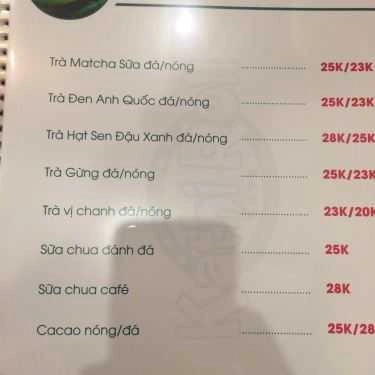 Trà Matcha Sữa đá/nóng ........................ 25K/23K
Trà Đen Anh Quốc đá/nóng ........................ 25K/23K
Trà Hạt Sen Đậu Xanh đá/nóng ........................ 28K/25K
Trà Gừng đá/nóng ........................ 25K/23K
Trà vị chanh đá/nóng ........................ 23K/20K
Sữa chua đánh đá ........................ 25K
Sữa chua café ........................ 28K
Cacao nóng/đá ........................ 25K/28